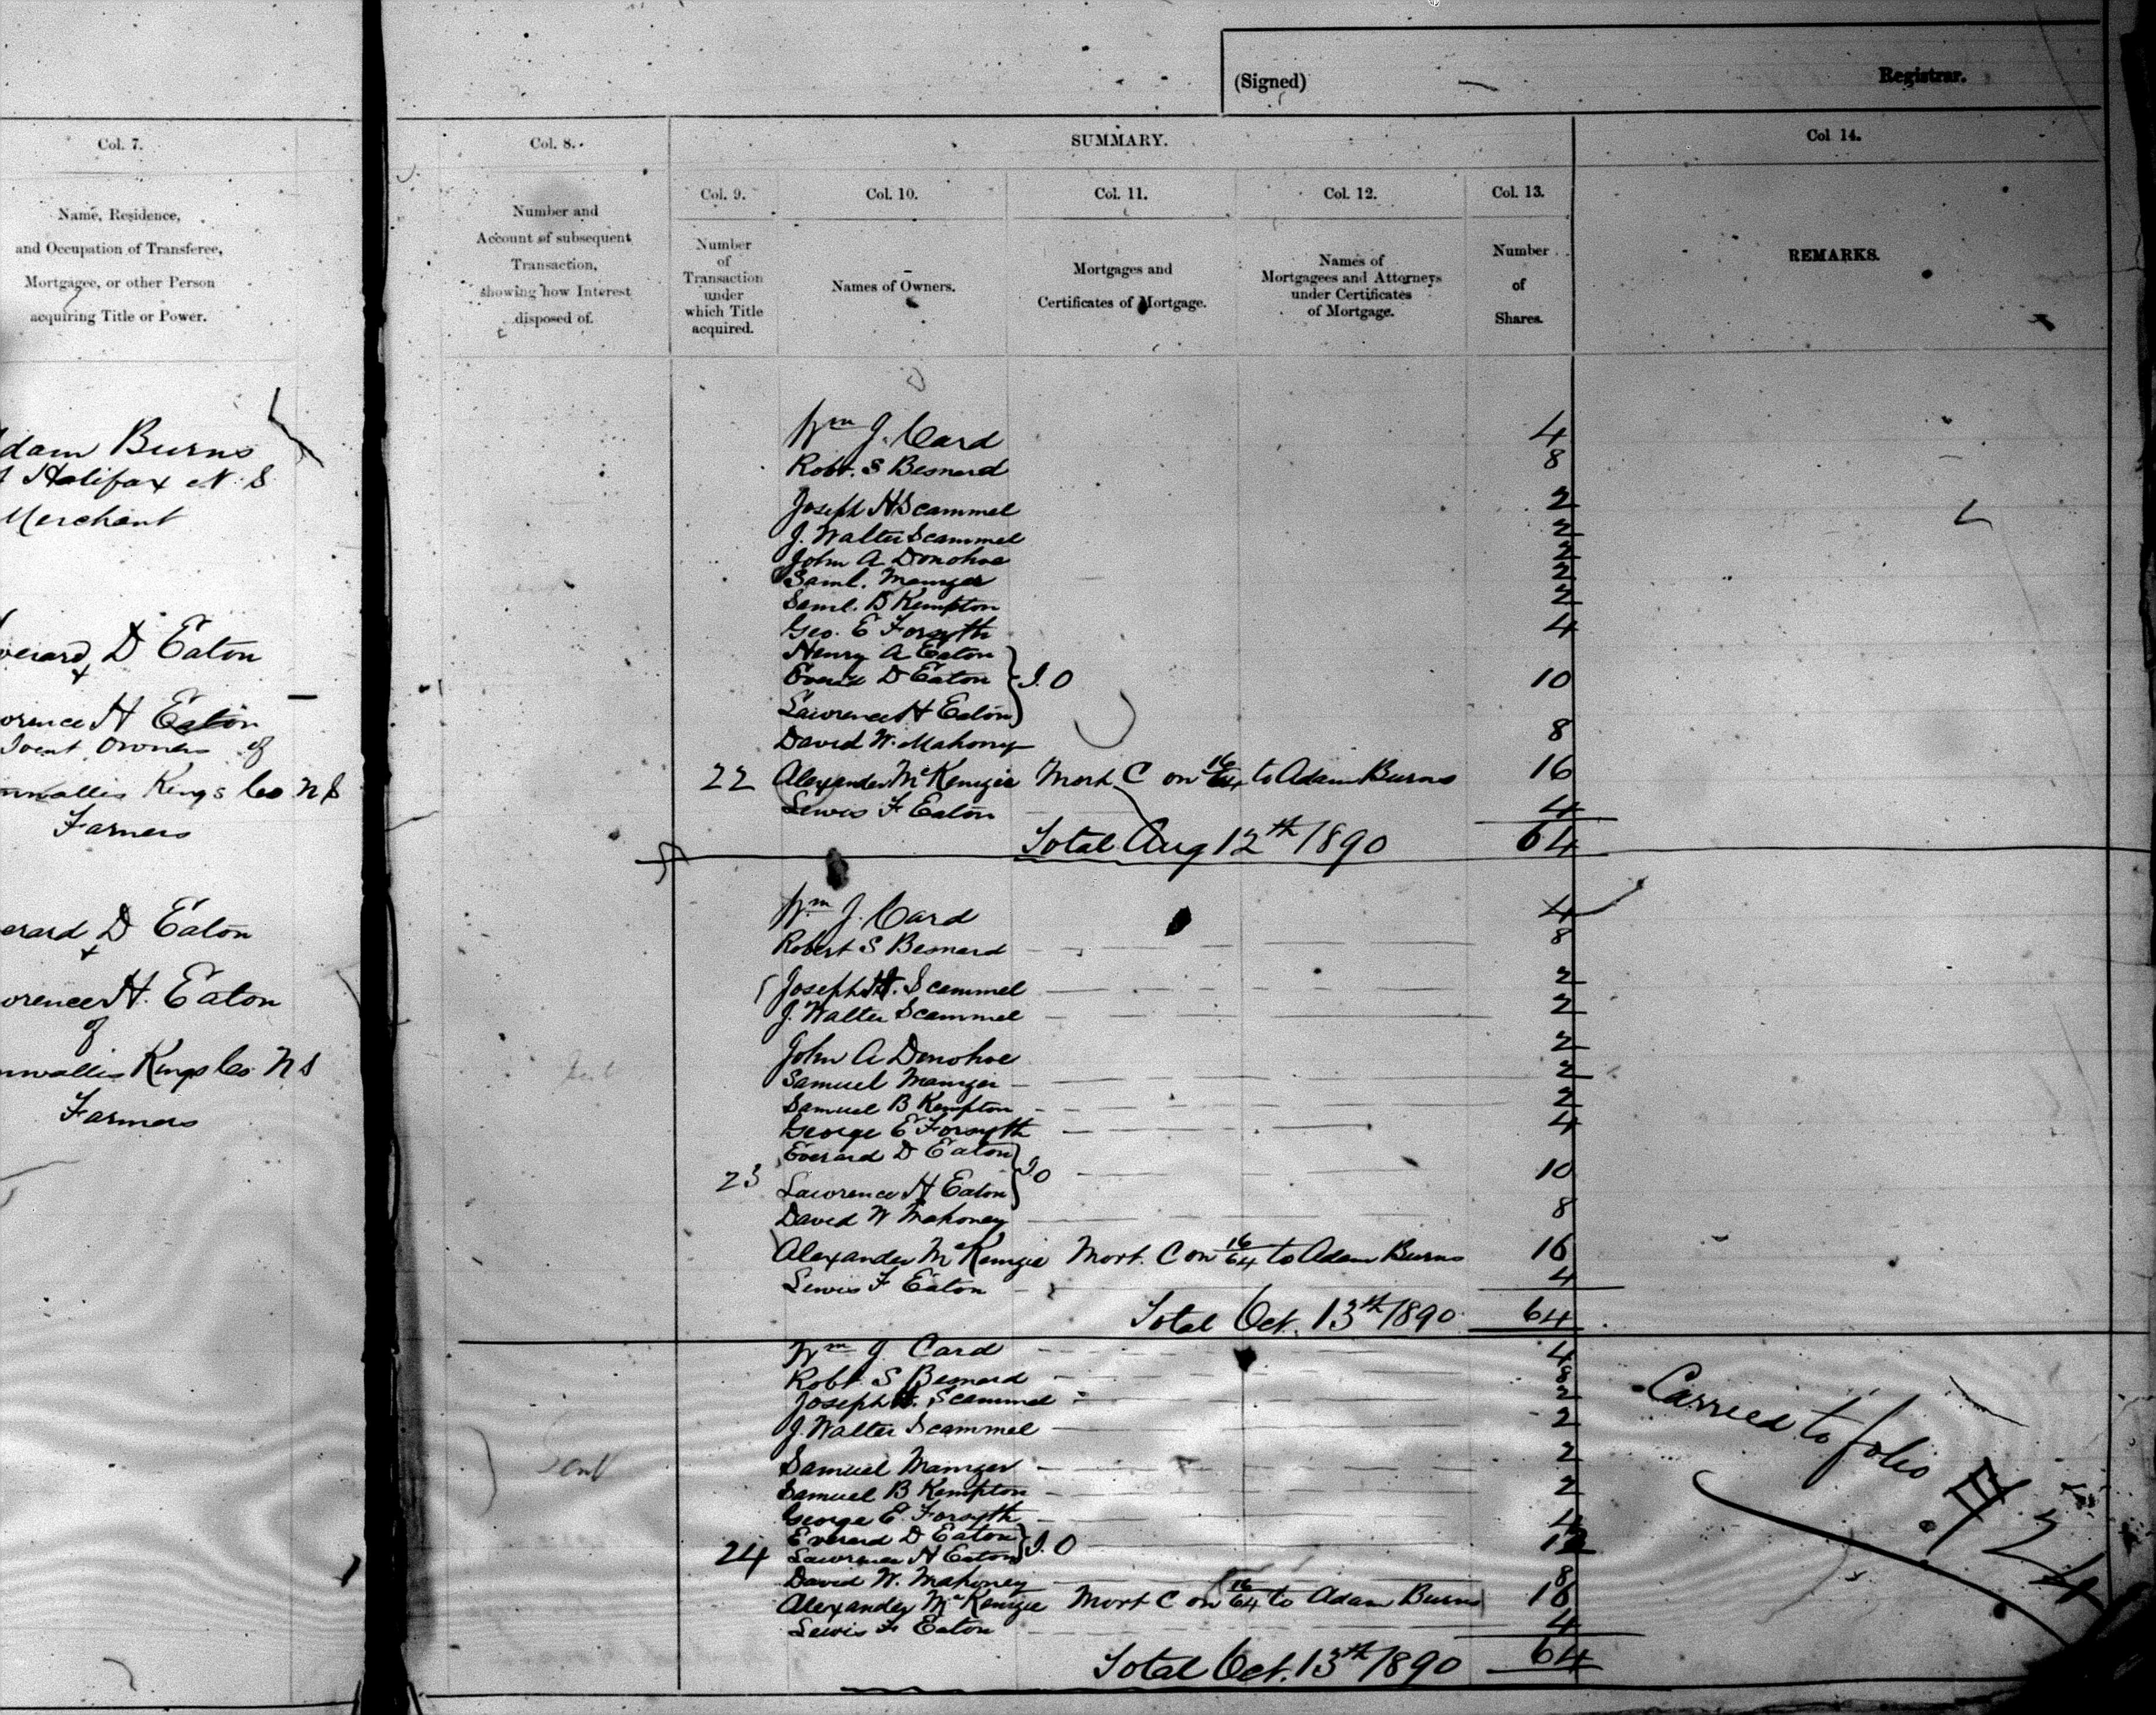 (Signed)
Registrar.
Col. 7.
Name, Residence,
and Occupation of Transferee,
Mortgagee, or other Person
acquiring Title or Power.
dam Burns
Halifax N. S
Merchant
verard D Eaton
+
orence H Eaton
Joint Owners of
nwallis Kings Co N S
Farmers
erard D Eaton
+
orence H. Eaton
of
nwallis Kings Co N S
Farmers
Col. 8.
Number and
Account of subsequent
Transaction,
showing how Interest
disposed of.
SUMMARY.
Col. 9.
Number
of
Transaction
under
which Title
acquired.
Col. 10.
Names of Owners.
Col. 11.
Mortgages and
Certificates of Mortgage.
Col. 12.
Names of
Mortgagees and Attorneys
under Certificates
of Mortgage.
Col. 13.
Number
of
Shares.
Col 14.
REMARKS.
Wm J. Card 4
Robt. S Besnard 8
Joseph H Scammel 2
J. Walter Scammel 2
John A Donohoe 2
Saml. Manzer 2
Saml. B Kempton 2
Geo. E Forsyth 4
Henry A Eaton
Everd D Eaton } J. O 10
Lawrence H Eaton
David W. Mahony 8
22 Alexander McKenzie Mort. C on 16/64 to Adam Burns 16
Lewis F Eaton 4
Total Aug 12th 1890 64
Wm J. Card 4
Robert S Besnard 8
Joseph H. Scammel 2
J. Walter Scammel 2
John A Donohoe 2
Samuel Manzer 2
Samuel B Kempton 2
George E Forsyth 4
Everard D Eaton } J O
23 Lawrence H Eaton 10
David W Mahoney 8
Alexander McKenzie Mort. C on 16/64 to Adam Burns 16
Lewis F Eaton 4
Total Oct. 13th 1890 64
Wm J Card 4
Robt S Besnard 8
Joseph H. Scammel 2
J. Walter Scammel 2
Samuel Manzer 2
Samuel B Kempton 2
George E. Forsyth 4
Everard D Eaton } J. O 12
24 Lawrence H Eaton
David W. Mahoney 8
Alexander McKenzie Mort C on 16/64 to Adam Burns 16
Lewis F Eaton 4
Total Oct. 13th 1890 64
Carried to folio 24